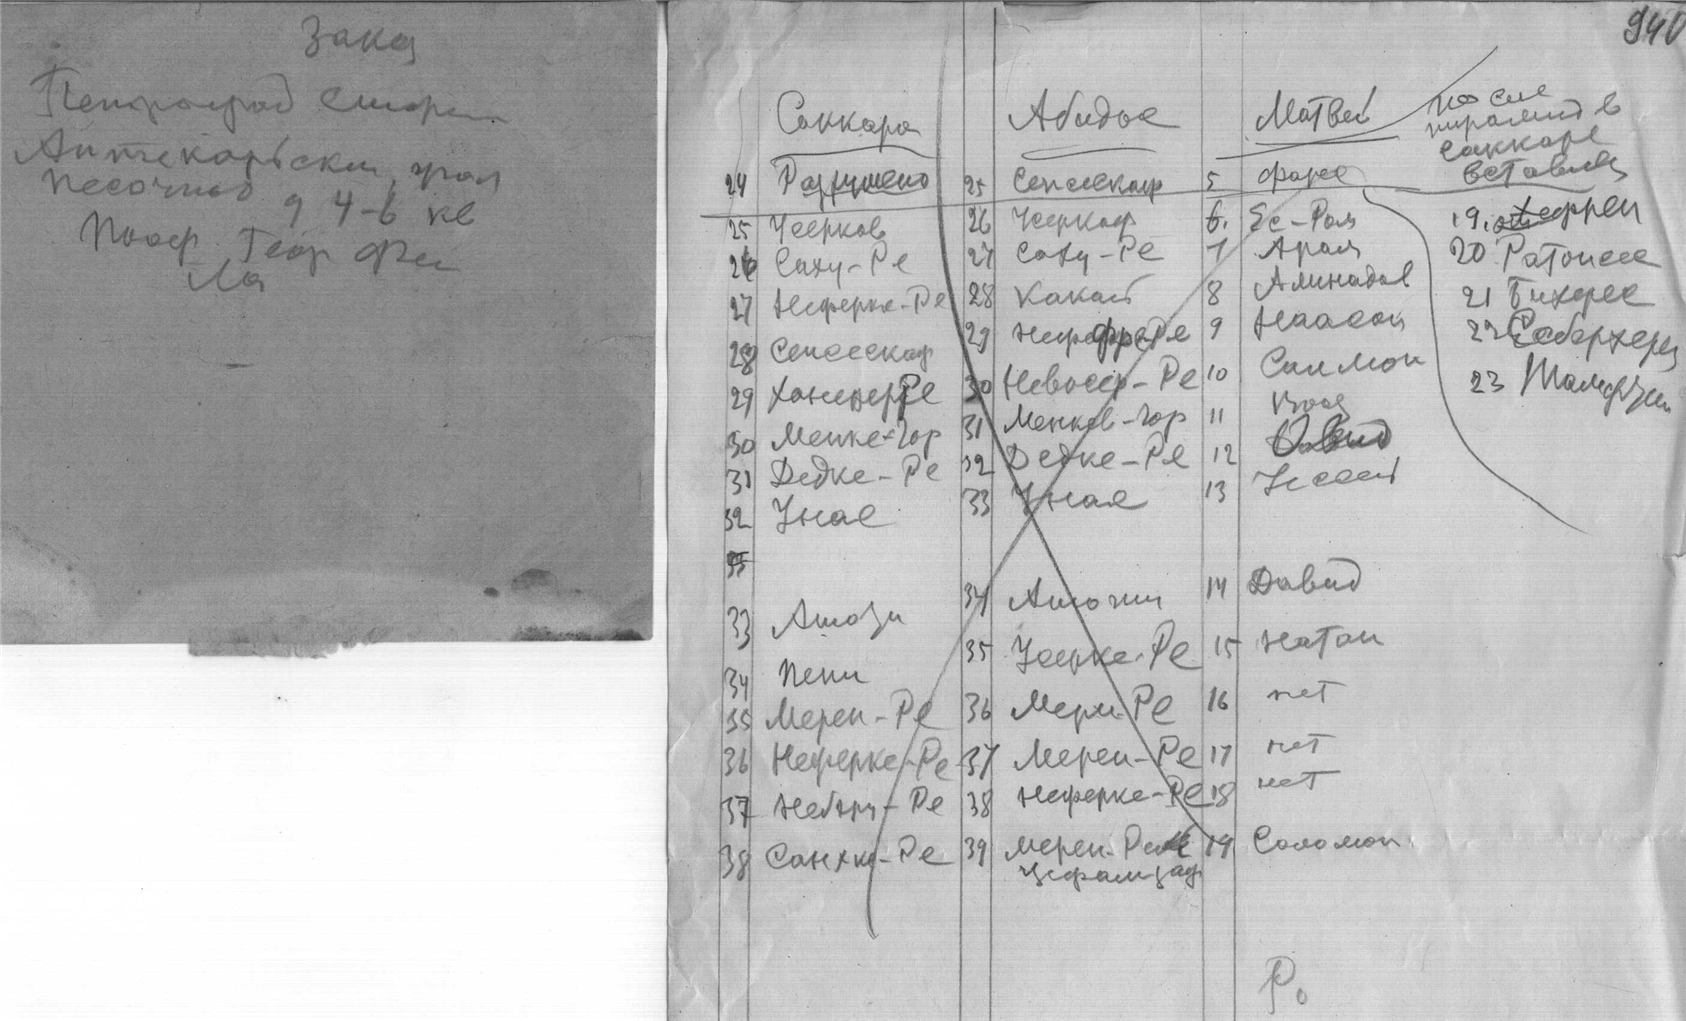 Заказ
Петроград Сторон
Аптекарьски
Песочная 9 4-6 кв
Проф Геор
940
Саккара Абидос Матвей
После
пирамид в
Саккаре
вставить
24 Разрушено 25 Сепсескаф 5 Фарес
25 Усерков 26 Усеркаф 6. Ес-Ром 19. Хефрен
26 Саху-Ре 27 Саху-Ре 7 Арам 20 Ратоисес
27 Неферке-Ре 28 Какаи 8 Аминадав 21 Бихерес
28 Сепсескаф 29 НефрфреРе 9 Наасон 22 Себерхерес
29 ХанеферРе 30 Невосер-Ре 10 Салмон 23 Тамфтис
30 Менке-Гор 31 Менков-Гор 11 Вооз
31 Дедке-Ре 32 Дедке-Ре 12 Овид
32 Унас 33 Унас 13 Иессей
33
33 Атози 34 Атоти 14 Давид
34 Пепи 35 Усерке-Ре 15 Натан
35 Мерен-Ре 36 Мери-Ре 16 нет
36 Неферке-Ре 37 Мерен-Ре 17 нет
37 Ре 38 Неферке-Ре 18 нет
38 Санхке-Ре 39 Мерен-Ре 19 Соломон
Р.